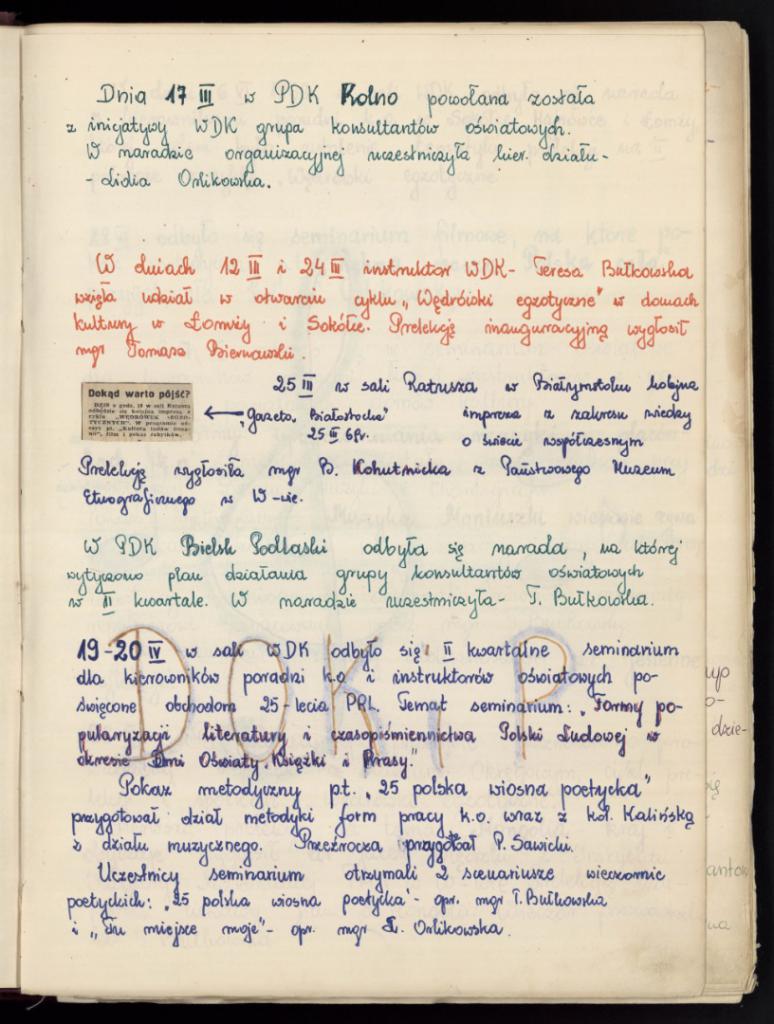 Dnia 17 III w PDK Kolno powołana została
z inicjatywy WDK grupa konsultantów oświatowych.
W naradzie organizacyjnej uczestniczyła kier. działu -
- Lidia Orlikowska.
W dniach 12 III i 24 III instruktor WDK - Teresa Bułkowska
wzięła udział w otwarciu cyklu „Wędrówki egzotyczne" w domach
kultury w Łomży i Sokółce. Prelekcję inauguracyjną wygłosił
mgr Tomasz Biernawski.
Dokąd warto pójść?
DZIŚ o godz. 18 w sali Ratusza
odbędzie się kolejna impreza z
cyklu „WĘDRÓWEK EGZO-
TYCZNYCH". W programie od-
czyt pt.
film i pokaz zabytków.
„Gazeta Białostocka"
25 III 69r.
25 III w sali Ratusza w Białymstoku kolejna
impreza z zakresu wiedzy
o świecie współczesnym
Prelekcję wygłosiła mgr B. Kohutnicka z Państwowego Muzeum
Etnograficznego w W-wie.
W PDK Bielsk Podlaski odbyła się narada, na której
wytyczono plan działania grupy konsultantów oświatowych
w II kwartale. W naradzie uczestniczyła - T. Bułkowska.
19-20 IV w sali WDK odbyło się II kwartalne seminarium
dla kierowników poradni k.o i instruktorów oświatowych po-
święcone obchodom 25-lecia PRL. Temat seminarium: „Formy po-
pularyzacji literatury i czasopiśmiennictwa Polski Ludowej w
okresie Dni Oświaty, Książki i Prasy."
DOKiP
Pokaz metodyczny p.t. „25 polska wiosna poetycka"
przygotował dział metodyki form pracy k.o. wraz z kol. Kalińską
z działu muzycznego. Przeźrocza przygotował P. Sawicki.
Uczestnicy seminarium otrzymali 2 scenariusze wieczornic
poetyckich: „25 polska wiosna poetycka" - opr. mgr T. Bułkowska
i „Tu miejsce moje" - opr. mgr L. Orlikowska.